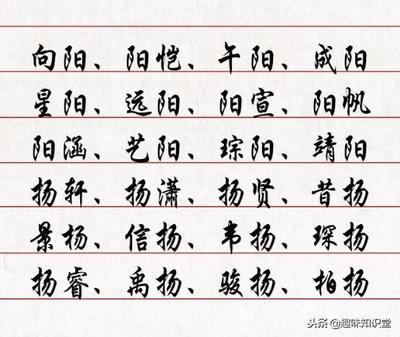 向阳、阳恺、午阳、成阳
星阳、远阳、阳宣、阳帆
阳涵、艺阳、琮阳、靖阳
扬轩、扬潇、扬贤、昔扬
景杨、信扬、韦扬、琛扬
扬睿、禹扬、骏扬、柏扬
头条@趣味知识堂